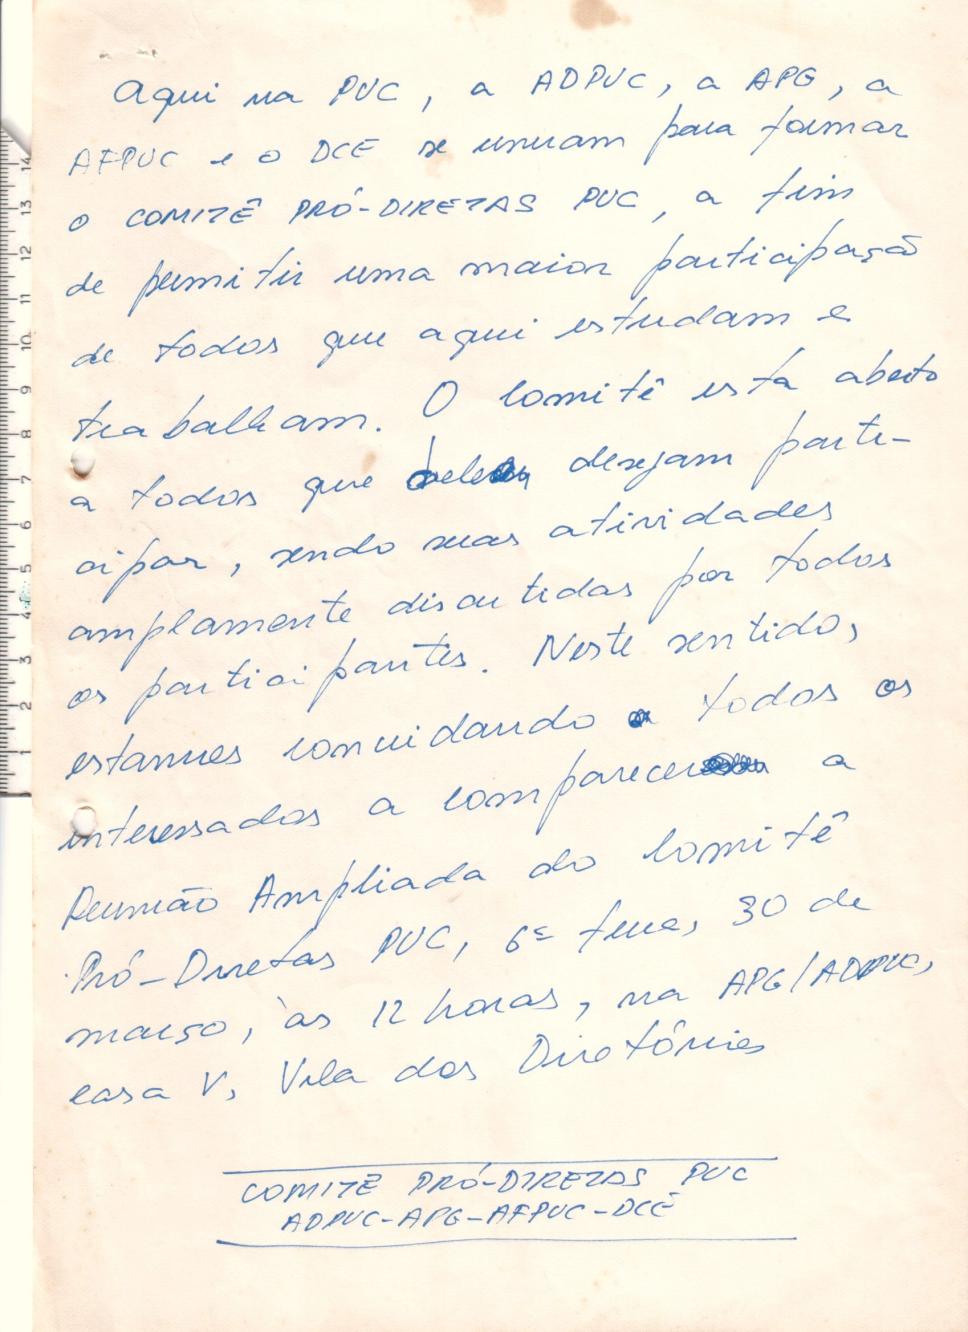 Aqui na PUC, a ADPUC, a APG, a
AFPUC e o DCE se uniram para formar
o COMITÊ PRÓ-DIRETAS PUC, a fim
de permitir uma maior participação
de todos que aqui estudam e
trabalham. O Comitê esta aberto
a todos que desejam parti-
cipar, sendo suas atividades
amplamente discutidas por todos
os participantes. Neste sentido,
estamos convidando a todos os
interessados a comparecer a
Reunião Ampliada do Comitê
Pró-Diretas PUC, 6ª feira, 30 de
março, às 12 horas, na APG/ADPUC,
casa V, Vila dos Diretórios
COMITÊ PRÓ-DIRETAS PUC
ADPUC-APG-AFPUC-DCE
14
13
12
11
10
9
8
7
6
5
4
3
2
1